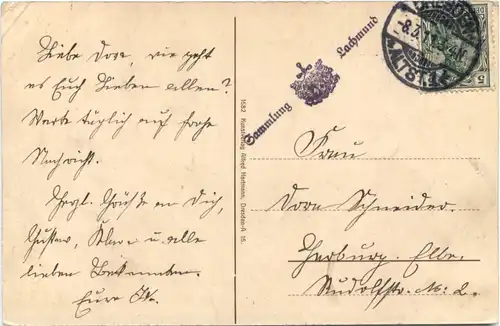 Liebe Dora, wie geht
es Euch Lieben allen?
Warte täglich auf frohe
Nachricht.
Herzl. Grüße an Dich,
Gustav, u. alle
lieben Bekannten.
Eure
Sammlung Lachmund
1682 Kunstverlag Alfred Hartmann, Dresden-A 16.
DRESDEN
ALTST.
5
Frau
Dora Schneider.
Harburg. Elbe.
Rudolfstr. No: 2.